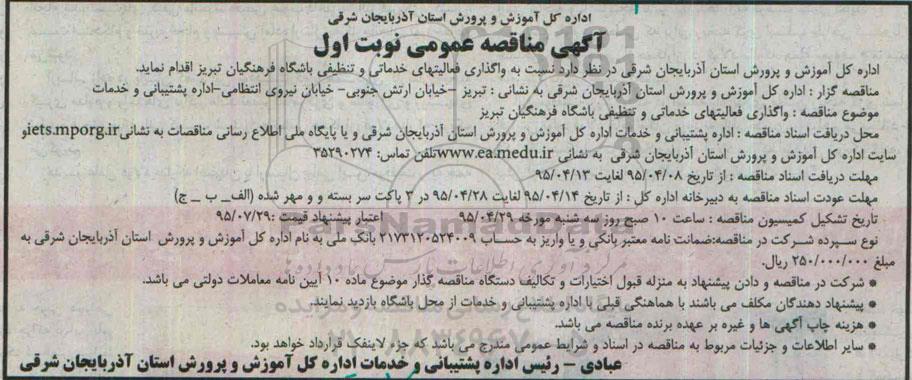 اداره کل آموزش و پرورش استان آذربایجان شرقی
آگهی مناقصه عمومی نوبت اول
اداره کل آموزش و پرورش استان آذربایجان شرقی در نظر دارد نسبت به واگذاری فعالیتهای خدماتی و تنظیفی باشگاه فرهنگیان تبریز اقدام نماید.
مناقصه گزار : اداره کل آموزش و پرورش استان آذربایجان شرقی به نشانی : تبریز -خیابان ارتش جنوبی- خیابان نیروی انتظامی-اداره پشتیبانی و خدمات
موضوع مناقصه : واگذاری فعالیتهای خدماتی و تنظیفی باشگاه فرهنگیان تبریز
محل دریافت اسناد مناقصه : اداره پشتیبانی و خدمات اداره کل آموزش و پرورش استان آذربایجان شرقی و یا پایگاه ملی اطلاع رسانی مناقصات به نشانی iets.mporg.ir و
سایت اداره کل آموزش و پرورش استان آذربایجان شرقی به نشانی www.ea.medu.ir تلفن تماس: ۳۵۲۹۰۲۷۴
مهلت دریافت اسناد مناقصه : از تاریخ ۹۵/۰۴/۰۸ لغایت ۹۵/۰۴/۱۳
مهلت عودت اسناد مناقصه به دبیرخانه اداره کل : از تاریخ ۹۵/۰۴/۱۴ لغایت ۹۵/۰۴/۲۸ در ۳ پاکت سر بسته و و مهر شده (الف_ ب _ ج)
تاریخ تشکیل کمیسیون مناقصه : ساعت ۱۰ صبح روز سه شنبه مورخه ۹۵/۰۴/۲۹ اعتبار پیشنهاد قیمت :۹۵/۰۷/۲۹
نوع سپرده شرکت در مناقصه:ضمانت نامه معتبر بانکی و یا واریز به حساب ۲۱۷۳۱۲۰۵۲۴۰۰۹ بانک ملی به نام اداره کل آموزش و پرورش استان آذربایجان شرقی به
مبلغ ۲۵۰/۰۰۰/۰۰۰ ریال.
* شرکت در مناقصه و دادن پیشنهاد به منزله قبول اختیارات و تکالیف دستگاه مناقصه گذار موضوع ماده ۱۰ آیین نامه معاملات دولتی می باشد.
* پیشنهاد دهندگان مکلف می باشند با هماهنگی قبلی با اداره پشتیبانی و خدمات از محل باشگاه بازدید نمایند.
* هزینه چاپ آگهی ها و غیره بر عهده برنده مناقصه می باشد.
* سایر اطلاعات و جزئیات مربوط به مناقصه در اسناد و شرایط عمومی مندرج می باشد که جزء لاینفک قرارداد خواهد بود.
عبادی – رئیس اداره پشتیبانی و خدمات اداره کل آموزش و پرورش استان آذربایجان شرقی